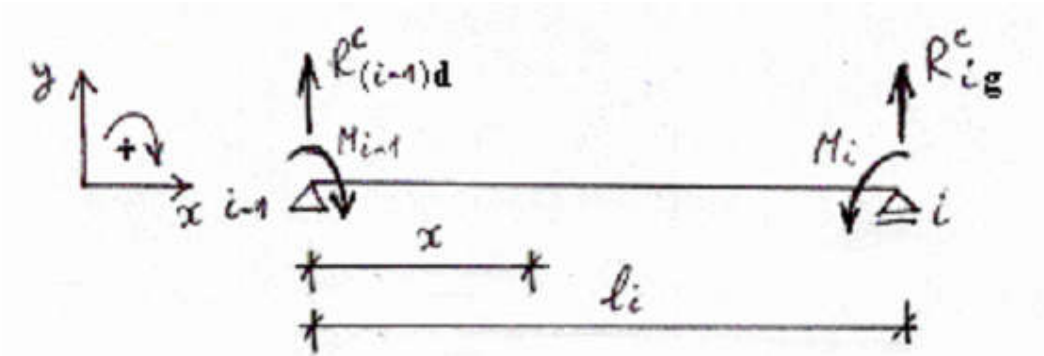 y
+
x
R^c_(i-1)d
M_i-1
R^c_ig
M_i
i-1
i
x
l_i